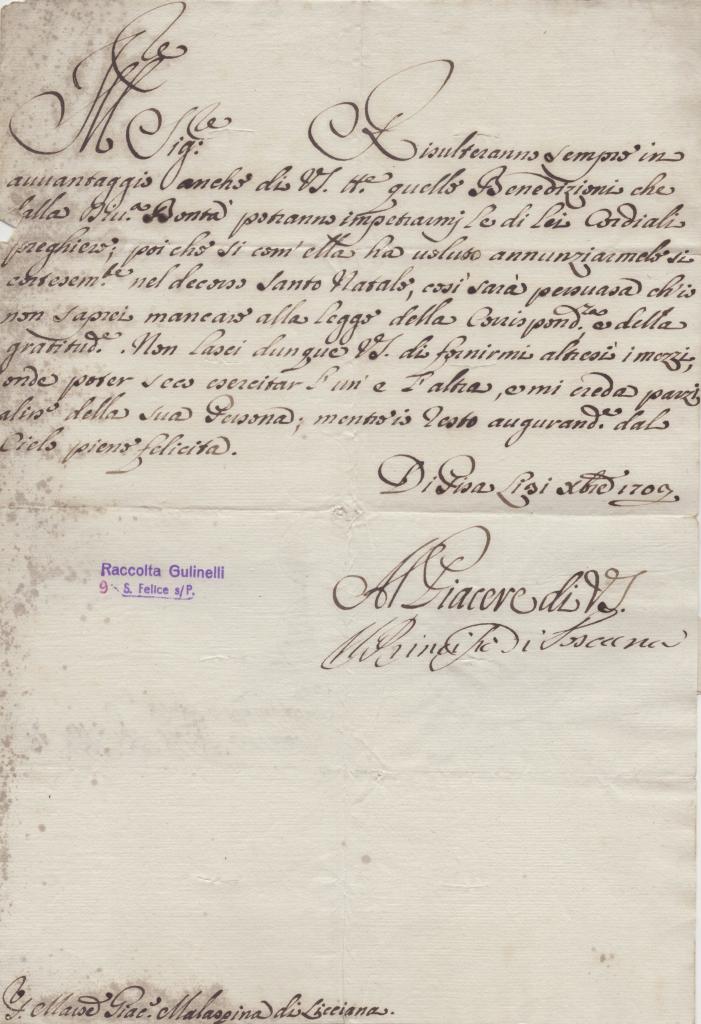 Ill.re
Sig.re Risulteranno sempre in
auvantaggio anche di VS. Ill.re quelle Benedizioni che
dalla Diu.a Bontà potranno impetrarmi le di lei Cordiali
preghiere; poiche si com'ella ha uoluto annunziarmele si
cortesem.te nel decorso Santo Natale, così sarà persuasa ch'io
non saprei mancare alla legge della Corrispond.za e della
gratitud.e. Non lasci dunque VS. di fornirmi altresì i mezzi,
onde poter seco esercitar l'un' e l'altra, e mi creda parzi
aliss.o della sua Persona; mentre io resto augurand.e dal
Cielo piene felicità.
Di Pisa Li 31 Xbre 1709
Al Piacere di VS.
Il Principe Di Toscana
Raccolta Gulinelli
9 - S. Felice s/P.
Giac.o Malaspina di Licciana.